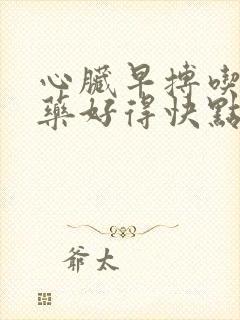 心臟早搏喫
藥好得快點
爺太